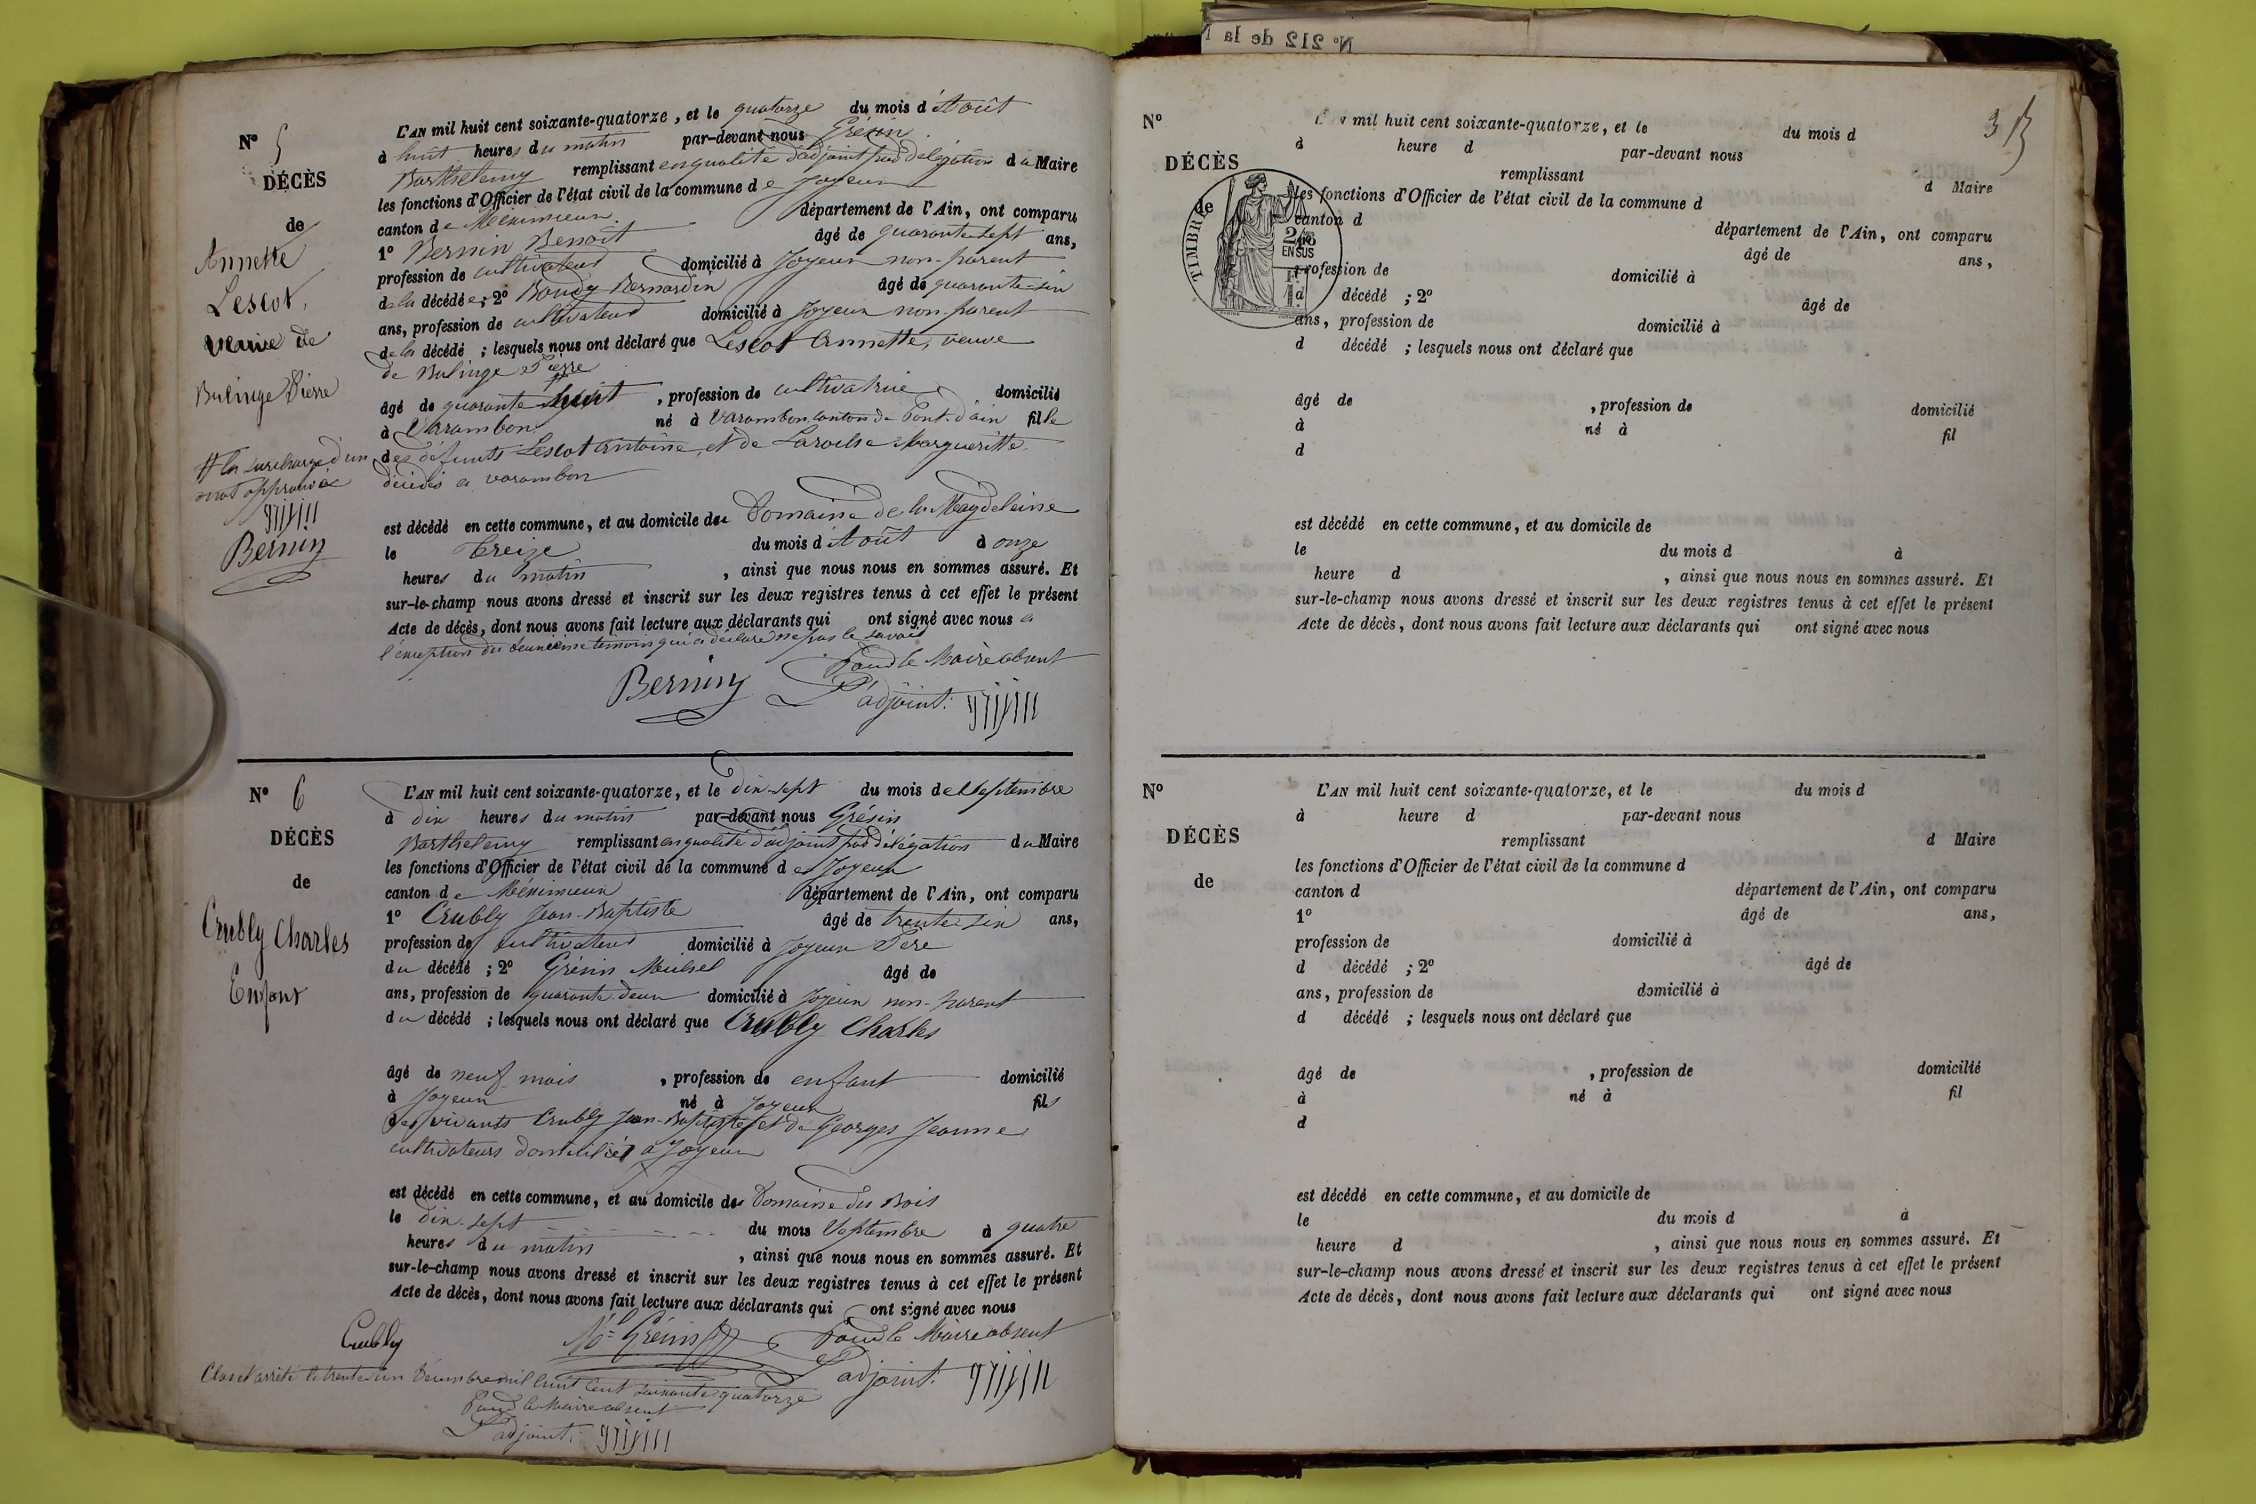 N° 5
DÉCÈS
de
Annette
Lescot,
veuve de
Bulinge Pierre
# la surcharge d'un
mot approuvée
Bernin
L'AN mil huit cent soixante-quatorze, et le quatorze du mois d'Août
à huit heures du matin par-devant nous Grésin
Barthelemy remplissant en qualité d'adjoint par délégation du Maire
les fonctions d'Officier de l'état civil de la commune de Joyeux
canton de Méximieux département de l'Ain, ont comparu
1° Bernin Benoît âgé de quarante-sept ans,
profession de cultivateur domicilié à Joyeux non-parent
de la décédée; 2° Boudy Bernardin âgé de quarante-six
ans, profession de cultivateur domicilié à Joyeux non-parent
de la décédé ; lesquels nous ont déclaré que Lescot Annette, veuve
de Bulinge Pierre
âgé de quarante huit, profession de cultivatrice domicilié
à Varambon né à Varambon canton de Pont d'ain fille
des défunts Lescot Antoine, et de Laroche Margueritte
décédés à varambon
est décédé en cette commune, et au domicile de Domaine de la Magdeleine
le treize du mois d'Août à onze
heures du matin, ainsi que nous nous en sommes assuré. Et
sur-le-champ nous avons dressé et inscrit sur les deux registres tenus à cet effet le présent
Acte de décès, dont nous avons fait lecture aux déclarants qui ont signé avec nous à
l'exception du deuxième témoin qui a déclaré ne pas le savoir
Pour le Maire absent
Bernin L'adjoint.
N° 6
DÉCÈS
de
Crubly Charles
Enfant
L'AN mil huit cent soixante-quatorze, et le dix-sept du mois de Septembre
à dix heures du matin par-devant nous Grésin
Barthelemy remplissant en qualité d'adjoint par délégation du Maire
les fonctions d'Officier de l'état civil de la commune de Joyeux
canton de Méximieux département de l'Ain, ont comparu
1° Crubly Jean-Baptiste âgé de trente-six ans,
profession de cultivateur domicilié à Joyeux Père
du décédé ; 2° Grésin Michel âgé de
ans, profession de quarante-deux domicilié à Joyeux non-parent
du décédé ; lesquels nous ont déclaré que Crubly Charles
âgé de neuf mois, profession de enfant domicilié
à Joyeux né à Joyeux fils
des vivants Crubly Jean-Baptiste, et de Georges Jeanne
cultivateurs domiciliés à Joyeux
est décédé en cette commune, et au domicile de Domaine du Bois
le dix-sept du mois Septembre à quatre
heures du matin, ainsi que nous nous en sommes assuré. Et
sur-le-champ nous avons dressé et inscrit sur les deux registres tenus à cet effet le présent
Acte de décès, dont nous avons fait lecture aux déclarants qui ont signé avec nous
Crubly Grésin Pour le Maire absent
L'adjoint.
Clos et arrêté le trente-un Décembre mil huit cent soixante-quatorze
Pour le Maire absent
L'adjoint.
N° 212 de la
N° L'AN mil huit cent soixante-quatorze, et le du mois d
à heure d par-devant nous
DÉCÈS
remplissant d Maire
de
les fonctions d'Officier de l'état civil de la commune d
canton d département de l'Ain, ont comparu
TIMBRE
2/10
EN SUS
âgé de ans,
profession de domicilié à
d décédé ; 2° âgé de
ans, profession de domicilié à
d décédé ; lesquels nous ont déclaré que
âgé de , profession de domicilié
à né à fil
d
est décédé en cette commune, et au domicile de
le du mois d à
heure d , ainsi que nous nous en sommes assuré. Et
sur-le-champ nous avons dressé et inscrit sur les deux registres tenus à cet effet le présent
Acte de décès, dont nous avons fait lecture aux déclarants qui ont signé avec nous
N°
DÉCÈS
de
L'AN mil huit cent soixante-quatorze, et le du mois d
à heure d par-devant nous
remplissant d Maire
les fonctions d'Officier de l'état civil de la commune d
canton d département de l'Ain, ont comparu
1° âgé de ans,
profession de domicilié à
d décédé ; 2° âgé de
ans, profession de domicilié à
d décédé ; lesquels nous ont déclaré que
âgé de , profession de domicilié
à né à fil
d
est décédé en cette commune, et au domicile de
le du mois d à
heure d , ainsi que nous nous en sommes assuré. Et
sur-le-champ nous avons dressé et inscrit sur les deux registres tenus à cet effet le présent
Acte de décès, dont nous avons fait lecture aux déclarants qui ont signé avec nous